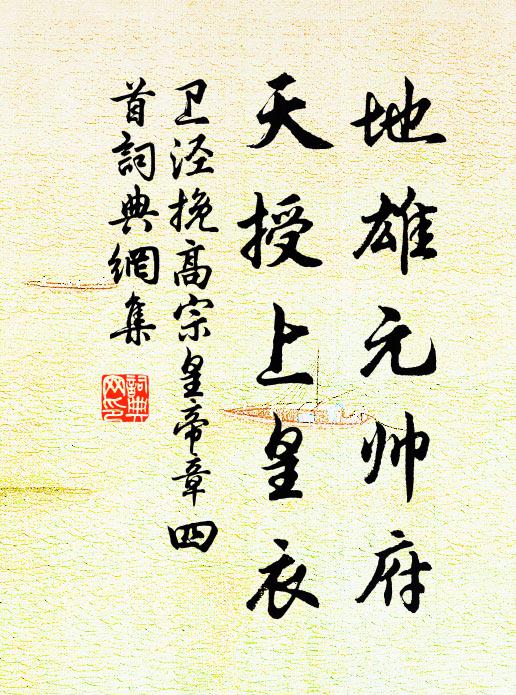 地雄元帅府
天授上皇衣
卫泾挽高宗皇帝章四
首詞典網集
詞典网印